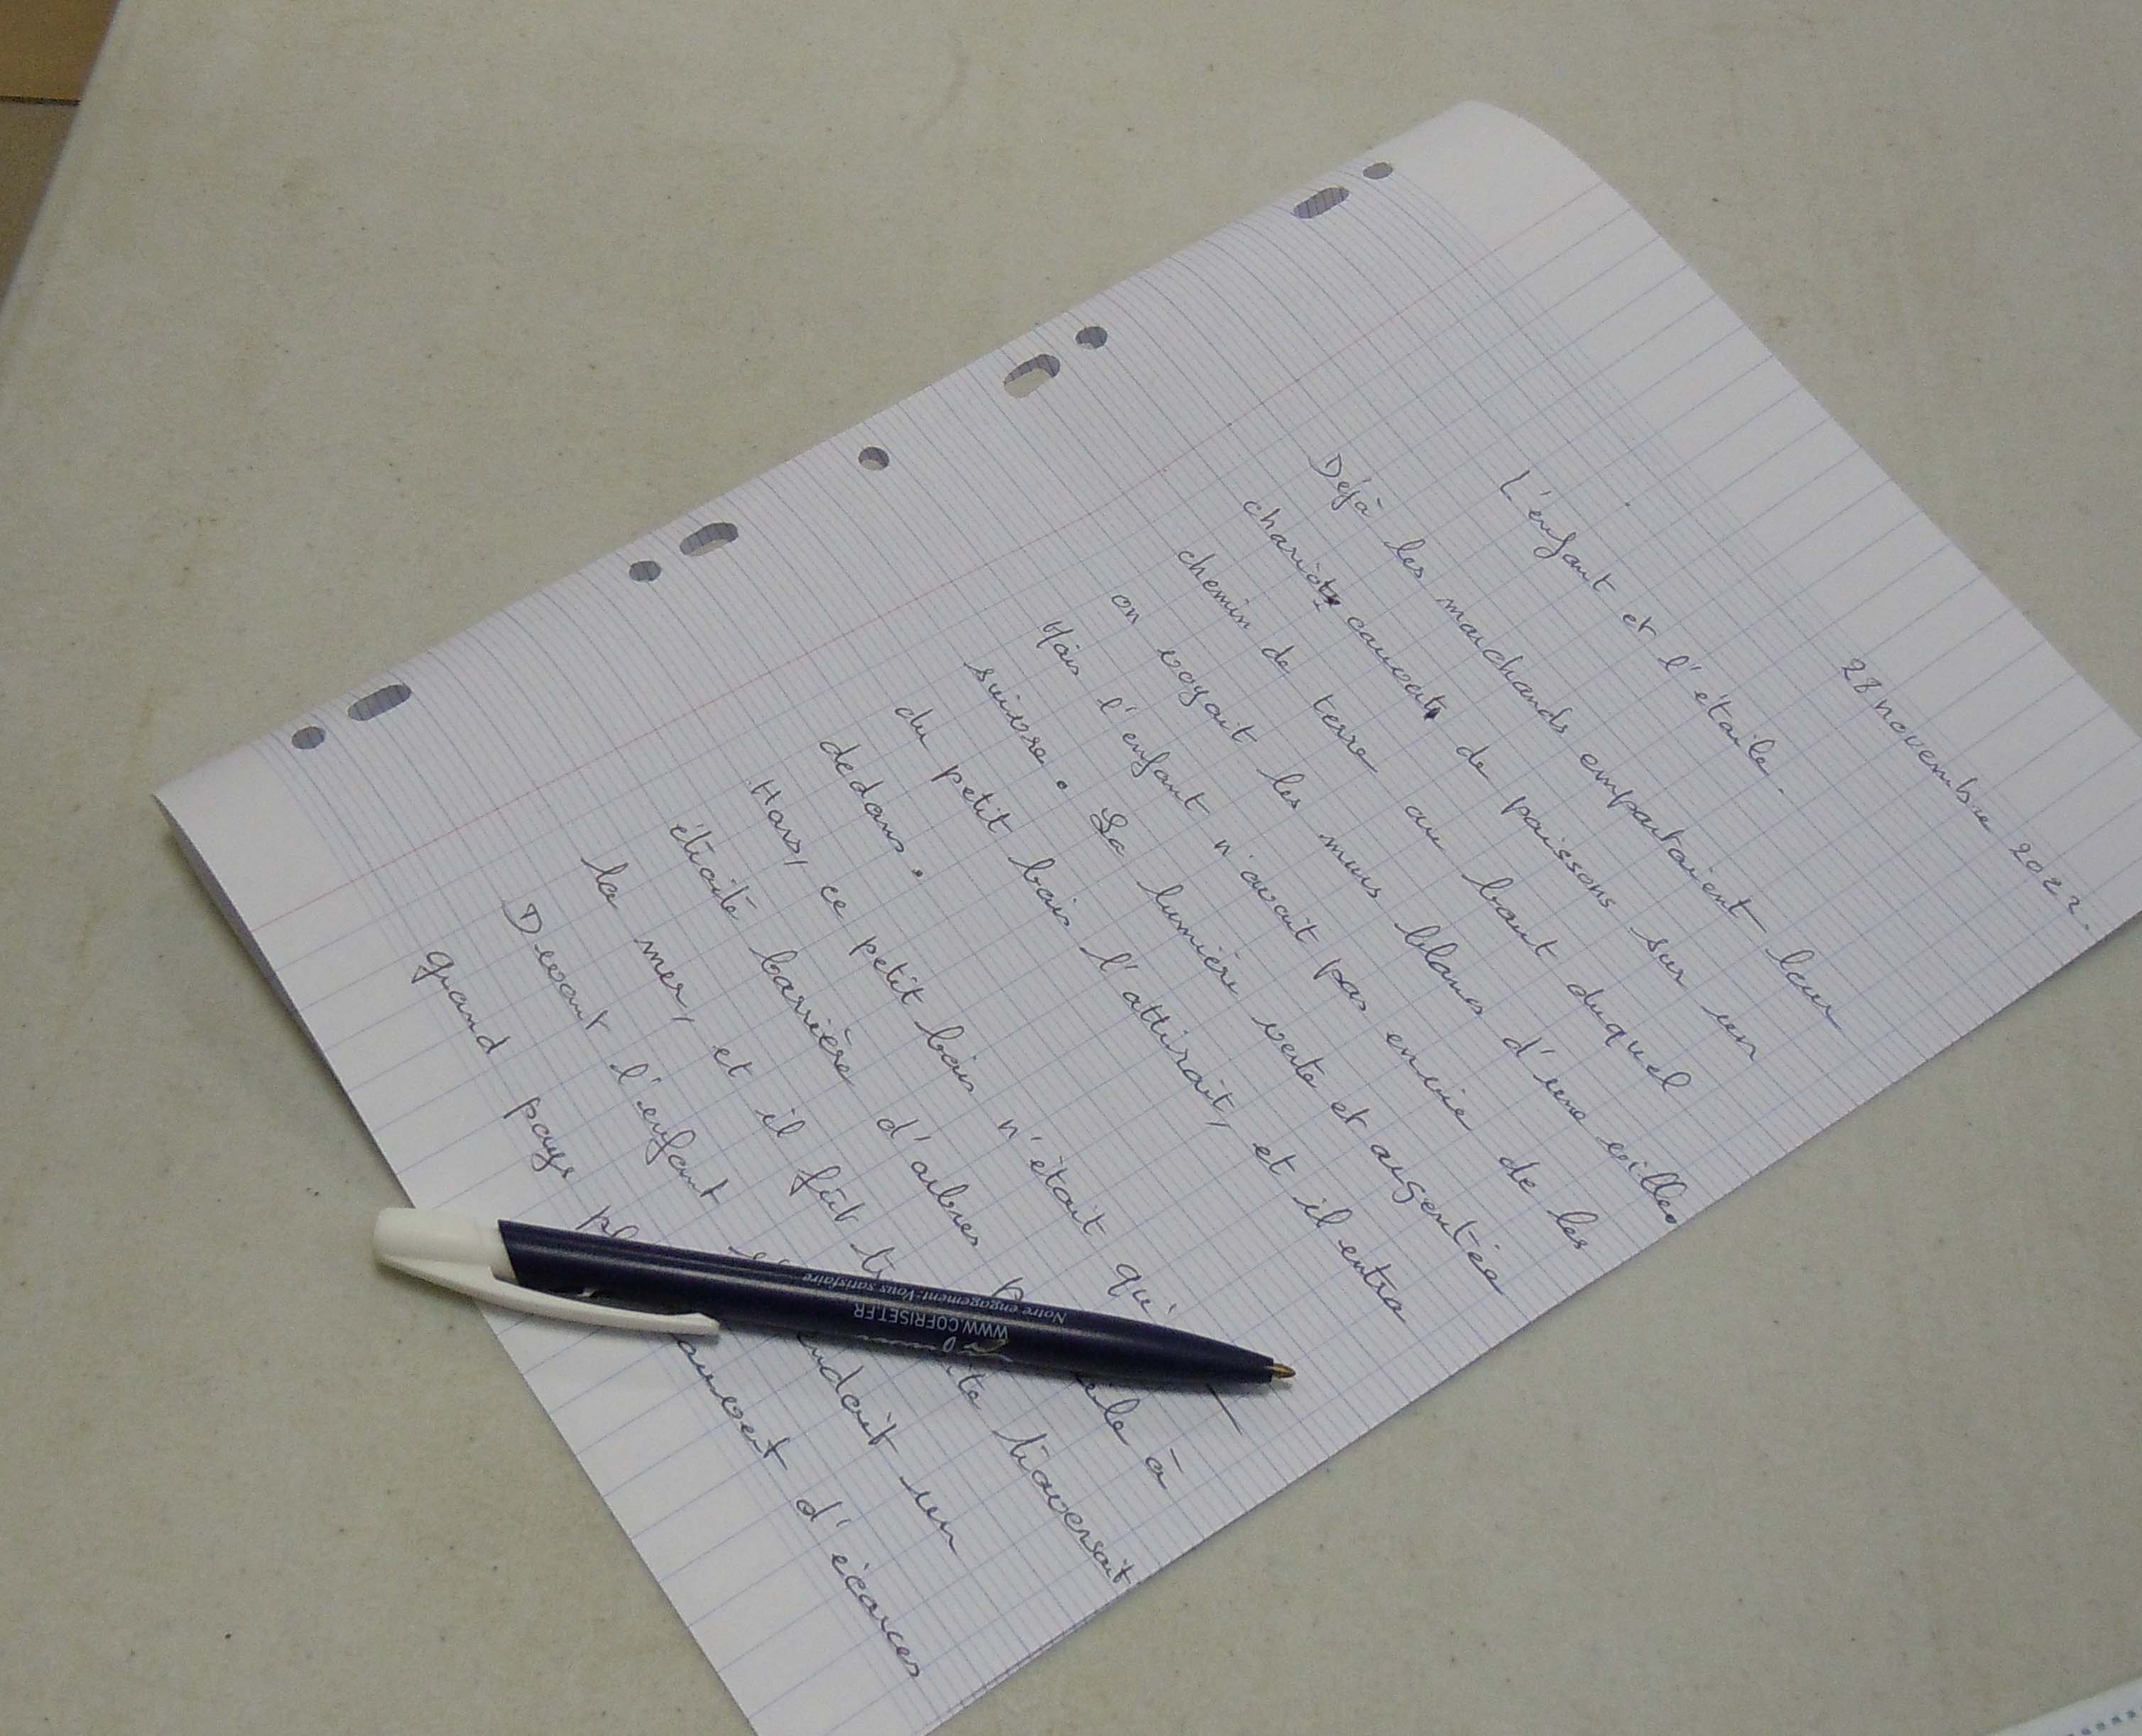 28 novembre 2022.
L'enfant et l'étoile.
Déjà les marchands emportaient leur
chariots couverts de poissons sur un
chemin de terre au bout duquel
on voyait les murs blancs d'une ville.
Mais l'enfant n'avait pas envie de les
suivre. La lumière verte et argentée
du petit bois l'attirait, et il entra
dedans.
Hors, ce petit bois n'était qu'
étroite barrière d'arbres à
la mer, et il fût traversait
Devant l'enfant un
grand pays d'écorces
Notre engagement: Vous satisfaire
WWW.COFRISET.FR